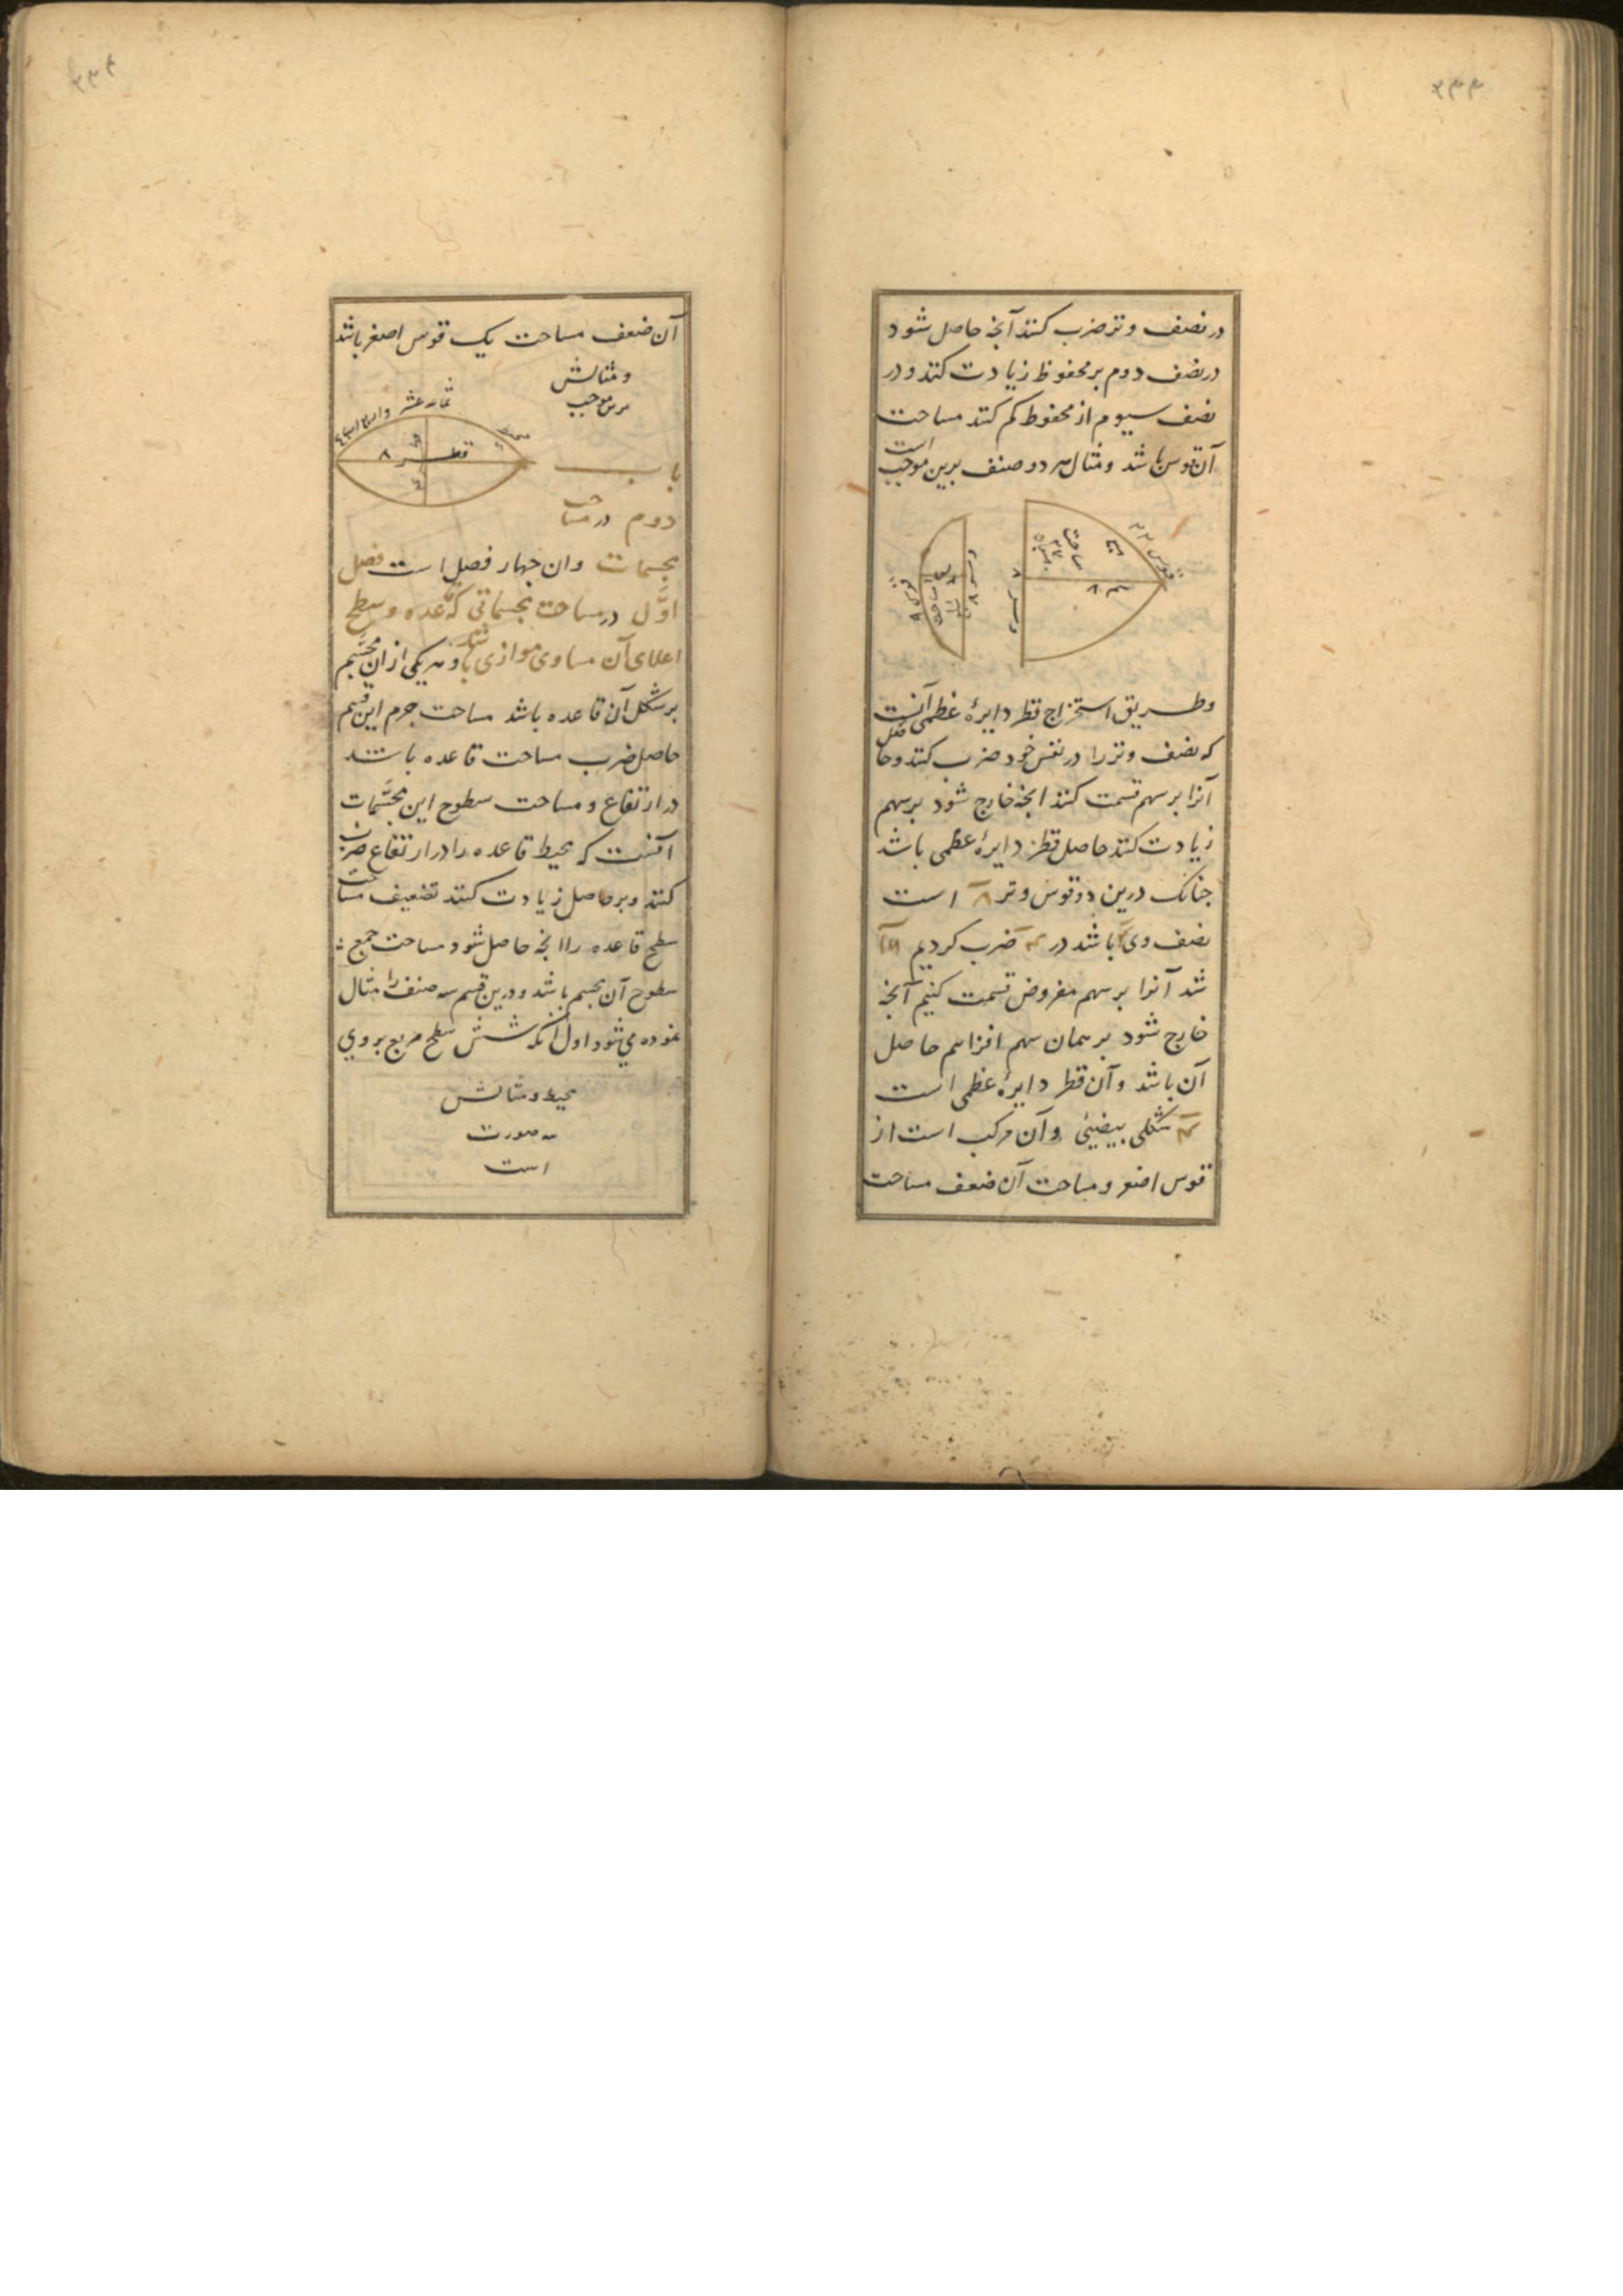 در نصف وتر ضرب کنند آنچه حاصل شود
در نصف دوم بر محفوظ زیادت کنند و در
نصف سیوم از محفوظ کم کنند مساحت
آن قوس باشد و مثال هر دو صنف برین موجب است
قوس
مساحت
وتر ۸
سهم ۸
وتر ۸
قوس
مساحت
وطریق استخراج قطر دایرهٔ عظمی آنست
که نصف وتر را در نفس خود ضرب کنند و حاصل
آنرا بر سهم قسمت کنند انچه خارج شود بر سهم
زیادت کنند حاصل قطر دایرهٔ عظمی باشد
چنانک درین دو قوس وتر ۸ است
نصف وی ۴ باشد در ۴ ضرب کردیم ۱۶
شد آنرا بر سهم مفروض قسمت کنیم آنچه
خارج شود بر همان سهم افزاییم حاصل
آن باشد و آن قطر دایرهٔ عظمی است
شکلی بیضیئی وآن مرکب است از
قوس اصغر و مساحت آن ضعف مساحت
آن ضعف مساحت یک قوس اصغر باشد
و مثالش
برین موجب
محیط
ثمانیه عشر
قطر ۸
باب
دوم در مساحت
مجسمات وان چهار فصل است فصل
اوّل در مساحت مجسماتی که قاعده و سطح
اعلای آن مساوی موازی باشد و هر یکی ازان مجسّم
بر شکل آن قاعده باشد مساحت جرم این قسم
حاصل ضرب مساحت قاعده باشد
در ارتفاع و مساحت سطوح این مجسّمات
آنست که محیط قاعده را در ارتفاع ضرب
کنند و بر حاصل زیادت کنند تضعیف مساحت
سطح قاعده را انچه حاصل شود مساحت جمع
سطوح آن مجسم باشد و درین قسم سه صنف را مثال
نموده می شود اول آنکه شش سطح مربع بروی
محیط و مثالش
صورت
است